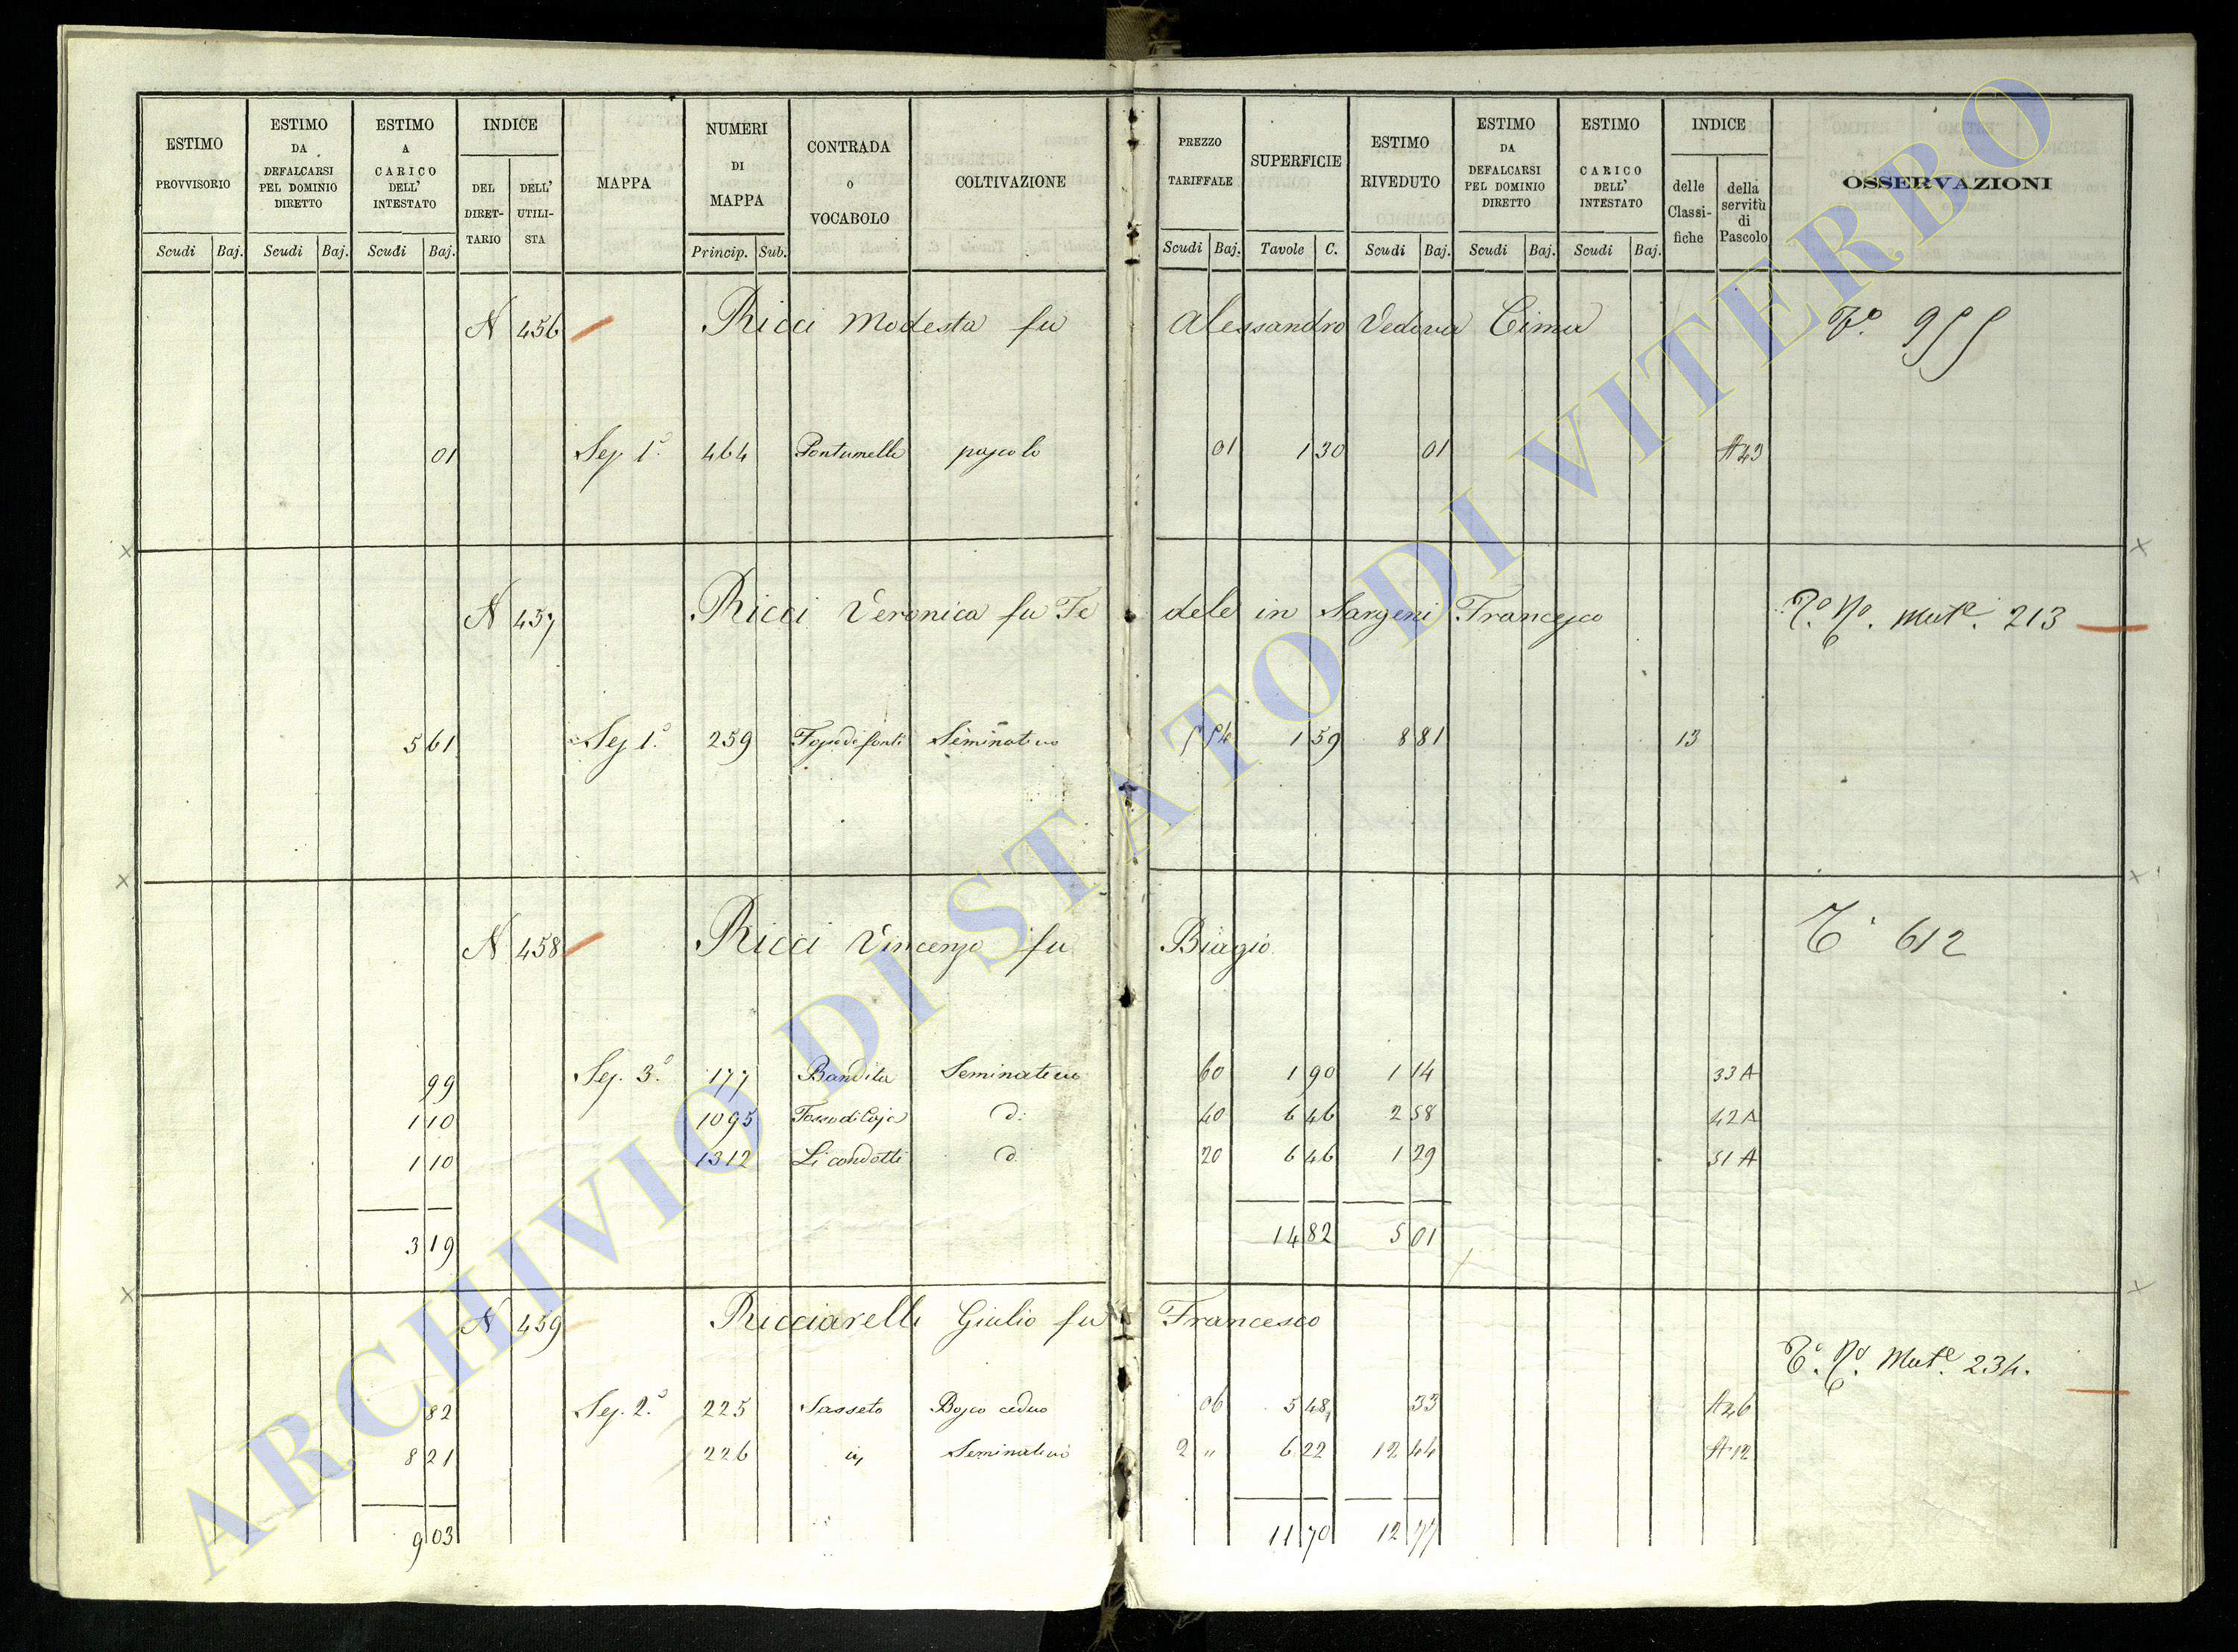 ESTIMO PROVVISORIO | ESTIMO DA DEFALCARSI PEL DOMINIO DIRETTO | ESTIMO A CARICO DELL' INTESTATO | INDICE | MAPPA | NUMERI DI MAPPA | CONTRADA O VOCABOLO | COLTIVAZIONE | PREZZO TARIFFALE | SUPERFICIE | ESTIMO RIVEDUTO | ESTIMO DA DEFALCARSI PEL DOMINIO DIRETTO | ESTIMO CARICO DELL' INTESTATO | INDICE | OSSERVAZIONI
DEL DIRETTARIO | DELL' UTILISTA | delle Classifiche | della servitù di Pascolo
Scudi | Baj. | Scudi | Baj. | Scudi | Baj. | Princip. | Sub. | Scudi | Baj. | Tavole | C. | Scudi | Baj. | Scudi | Baj. | Scudi | Baj.
N 456 Ricci Modesta fu Alessandro Vedova Cima 955
01 Sez 1ª 464 pascolo 01 1 30 01 A 43
N 457 Ricci Veronica fu Fedele in Sargeni Francesco Mute. 213
5 61 Sez 1ª 259 Seminativo 5 54 1 59 8 81 13
N 458 Ricci Vincenzo fu Biagio 612
99 Sez. 3ª 177 Bandita Seminativo 60 1 90 1 14 33 A
1 10 1095 d: 40 6 46 2 58 42 A
1 10 1312 Li condotti d. 20 6 46 1 29 51 A
3 19 14 82 5 01
N 459 Ricciarelli Giulio fu Francesco Mute. 234.
82 Sez. 2ª 225 Sasseto Bosco ceduo 06 5 48 33 A 46
8 21 226 Seminativo 2 " 6 22 12 44 A 12
9 03 11 70 12 77
ARCHIVIO DI STATO DI VITERBO